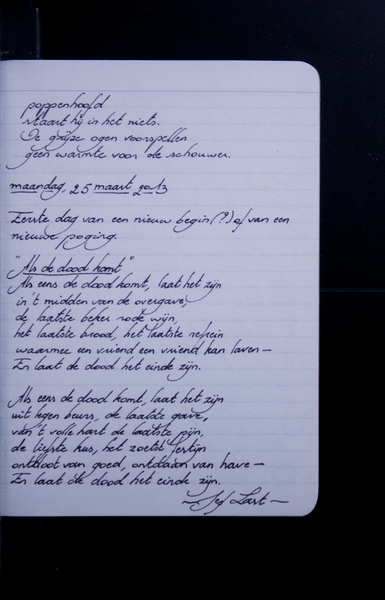 poppenhoofd
staart hij in het niets.
De grijze ogen voorspellen
geen warmte voor de schouwer.
maandag, 25 maart 2013
Eerste dag van een nieuw begin (?) of van een
nieuwe poging.
"Als de dood komt"
Als eens de dood komt, laat het zijn
in 't midden van de overgave,
de laatste beker rode wijn,
het laatste brood, het laatste refrein
waarmee een vriend een vriend kan laven —
En laat de dood het einde zijn.
Als eens de dood komt, laat het zijn
uit eigen beurs, de laatste gave,
van 't volle hart de laatste pijn,
de liefste kus, het zoetst festijn
ontbloot van goed, ontdaan van have —
En laat de dood het einde zijn.
— Jef Last —